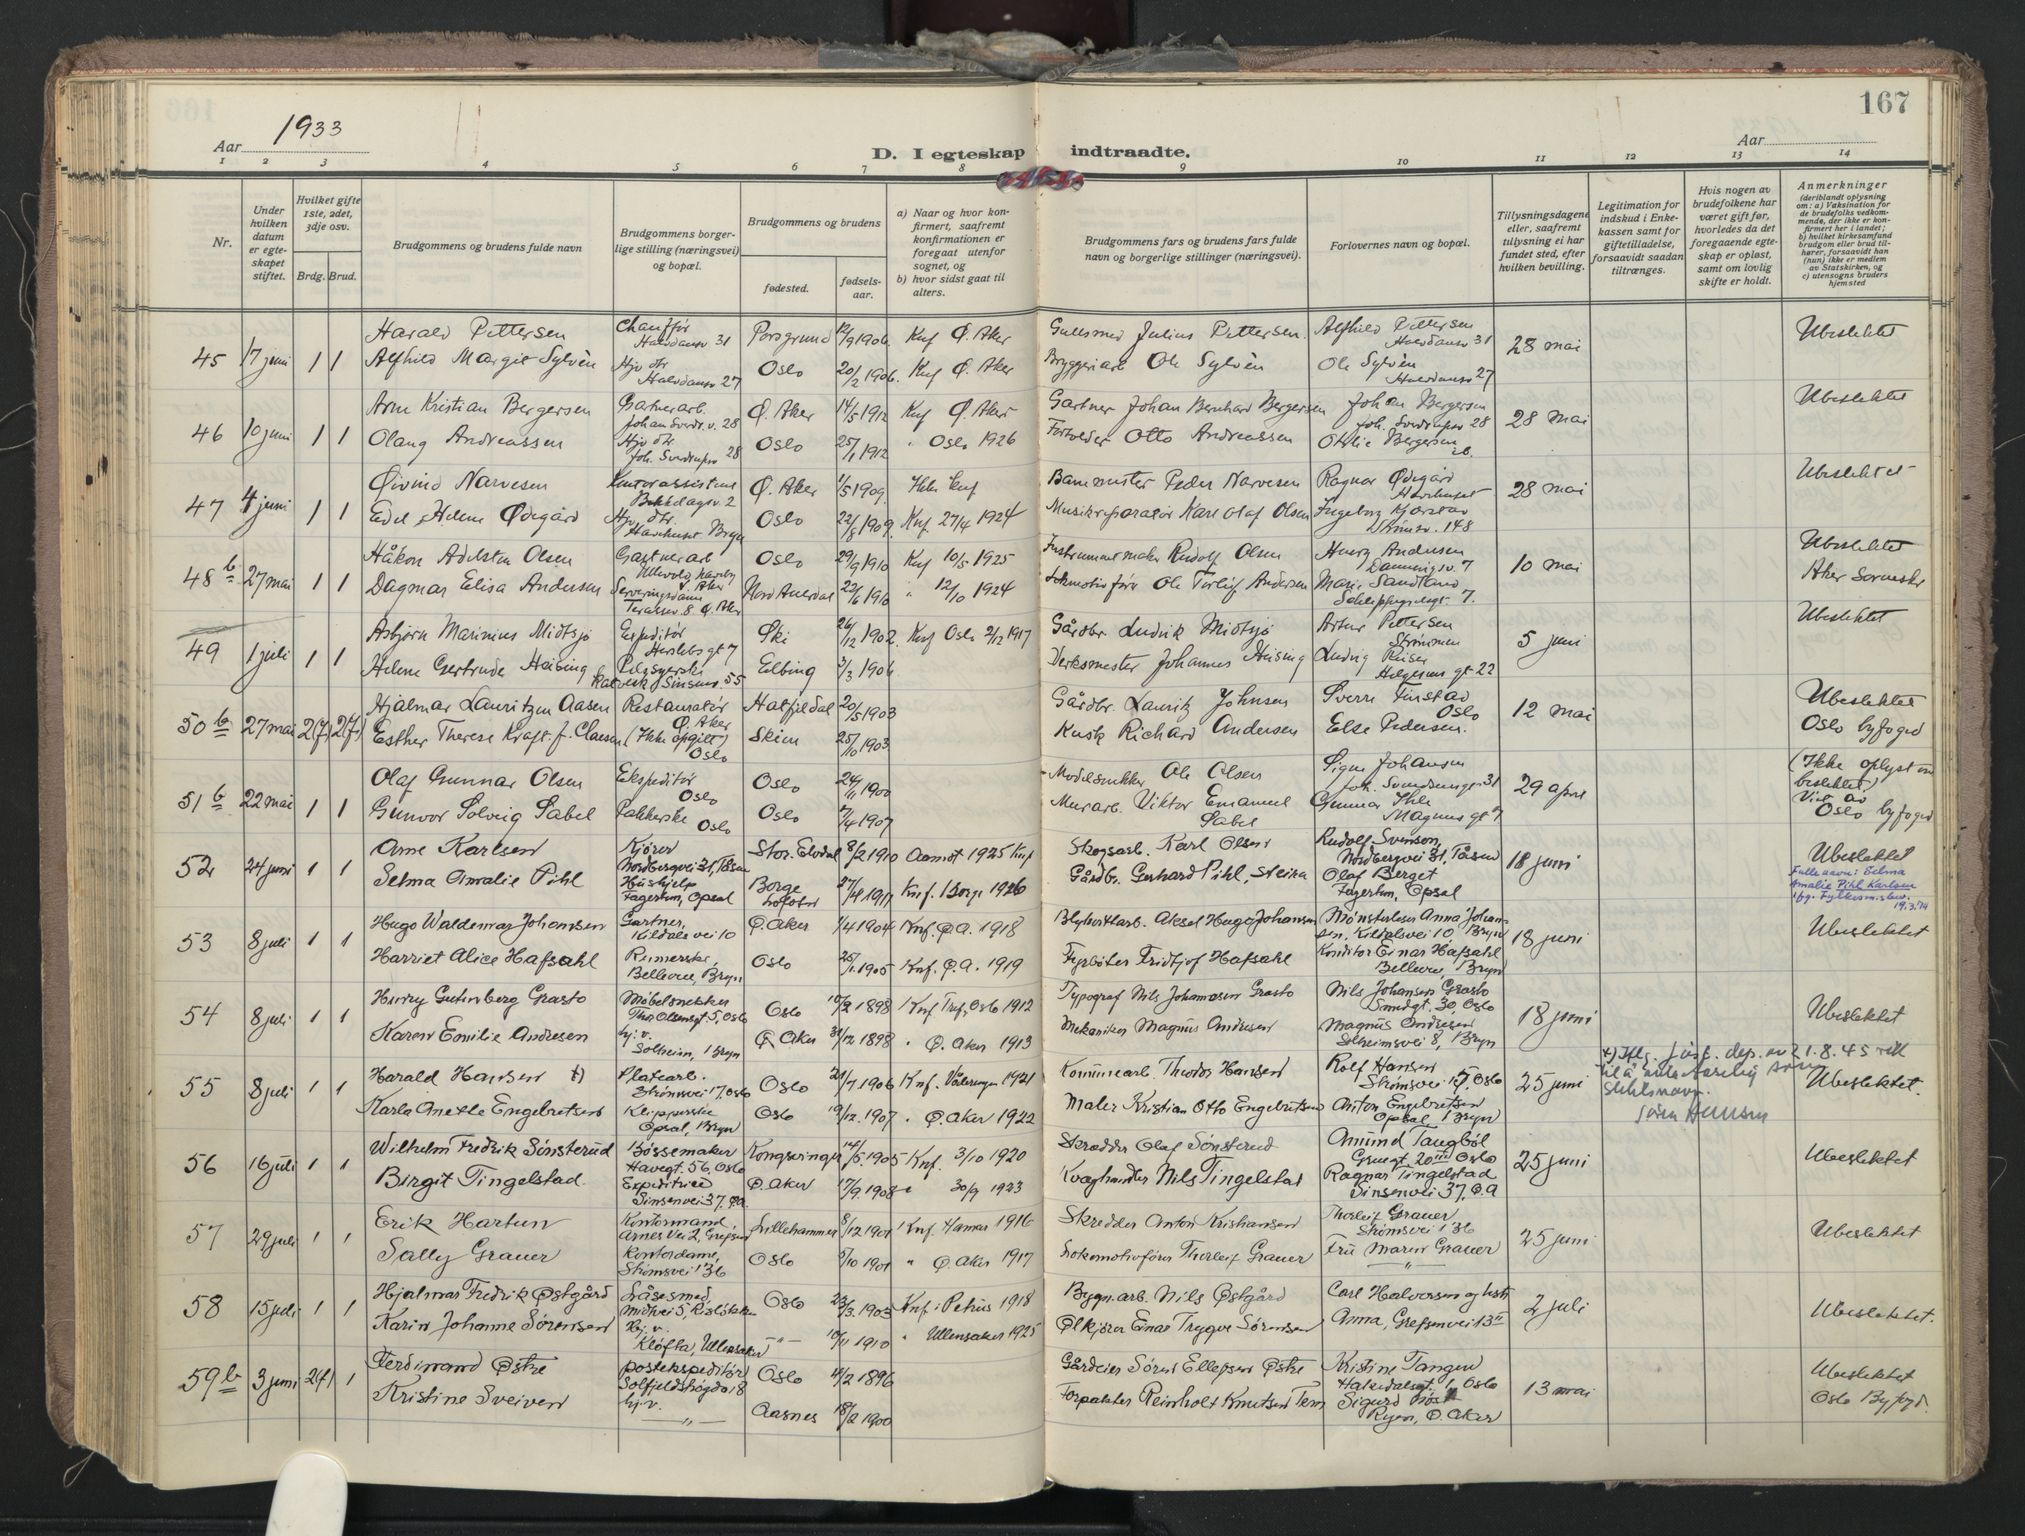 167
Aar 1933
Aar
D. I egteskap indtraadte.
1 2 3 4 5 6 7 8 9 10 11 12 13 14
Nr.
Under hvilken datum er egteskapet stiftet.
Hvilket gifte 1ste, 2det, 3dje osv.
Brdg. Brud.
Brudgommens og brudens fulde navn
Brudgommens borgerlige stilling (næringsvei) og bopæl.
Brudgommens og brudens
fødested.
fødselsaar.
a) Naar og hvor konfirmert, saafremt konfirmationen er foregaat utenfor sognet, og
b) hvor sidst gaat til alters.
Brudgommens fars og brudens fars fulde navn og borgerlige stillinger (næringsvei).
Forlovernes navn og bopæl.
Tillysningsdagene eller, saafremt tillysning ei har fundet sted, efter hvilken bevilling.
Legitimation for indskud i Enkekassen samt for giftetilladelse, forsaavidt saadan tiltrænges.
Hvis nogen av brudefolkene har været gift før, hvorledes da det foregaaende egteskap er opløst, samt om lovlig skifte er holdt.
Anmerkninger (deriblandt oplysning om: a) Vaksination for de brudefolks vedkommende, der ikke er konfirmert her i landet; b) hvilket kirkesamfund brudgom eller brud tilhører, forsaavidt han (hun) ikke er medlem av Statskirken, og c) utensogns bruders hjemsted
45 17 juni 1 1 Harald Pettersen Chauffør Halvdansv 31 Porsgrund 12/9 1906 Knf Ø. Aker Gullsmed Julius Pettersen Alfhild Pettersen Halvdansv 31 28 mai Ubeslektet
Alfhild Margit Sylvèn Hjv dtr Halvdansv 27 Oslo 20/2 1906. Knf Ø. Aker Bryggeriarb Ole Sylvèn Ole Sylvèn Halvdansv 27
46 10 juni 1 1 Arne Kristian Bergersen Gartnerarb. Johan Sverdr. v. 28 Ø. Aker 14/5 1912 Knf Ø. Aker Gartner Johan Bernhard Bergersen Johan Bergersen Joh. Sverdrupsv 28 28 mai Ubeslektet
Olaug Andreassen Hjv dtr Joh. Sverdrupsv 28 Oslo 25/1 1912 " Oslo 1926 Otto Andreassen Othilie Bergersen
47 4 juni 1 1 Øivind Narvesen Kontorassistent Bekkelagsv. 2 Ø. Aker 1/5 1909. Ikke knf Banemester Peder Narvesen Ragnar Ødegård 28 mai Ubeslektet
Edel Helene Ødegård Hjv dtr. Bryn Oslo 22/8 1909. Knf. 27/4 1924 Musikreparatør Karl Olaf Olsen Ingeborg Strømsv. 148
48 b 27 mai 1 1 Håkon Adelsten Olsen Gartnerarb Ullevold Ø. Aker Oslo 29/9 1910 Knf 10/5 1925 Instrumentmaker Rudolf Olsen Andersen 10 mai Ubeslektet
Dagmar Elisa Andersen Serveringsdame Terassev. 8 Ø. Aker Nord Aurdal 22/6 1910 " 12/10 1924 Lokomotivfører Ole Andersen Marie Sandland 7. Aker Sorenskr
49 1 juli 1 1 Asbjørn Marinius Midtsjø Expeditør Herslebs gt 7 Ski 26/12 1902. Knf Oslo 2/12 1917 Gårdbr. Ludvik Midtsjø Artur Pettersen Strømmen 5 juni Ubeslektet
Helene Gertrude Heising Pelssyerske Katolsk Sinsenv. 55 Elbing 3/3 1906 Verksmester Johannes Heising Ludvig Reiser Helgesens gt 22
50 b 27 mai 2(f) 2(f) Hjalmar Lauritzen Aasen Restauratør Ø. Aker Hatfjeldal 20/5 1903 Gårdbr. Lauritz Johnsen Sverre Finstad Oslo 12 mai Ubeslektet
Esther Therese Kraft f. Claesen (Ikke opgitt) Oslo Skien 25/10 1903 Kusk Richard Andersen Else Pedersen. Oslo byfoged
51 b 22 mai 1 1 Olaf Gunnar Olsen Ekspeditør Oslo Oslo 24/11 1900 Modelsnekker Ole Olsen Signe Johansen Joh. Svendsensgt 31 29 april (Ikke oplyst om beslektet)
Gunvor Solveig Sabel Pakkerske Oslo Oslo 7/4 1907 Murarb. Viktor Emanuel Sabel Gunnar Ihle Magnus gt 7 Viet av Oslo byfoged
52 24 juni 1 1 Arne Karlsen Kjører Nordbergvei 31, Tåsen Stor-Elvdal 8/2 1910 Aamot 1925 Knf Skogsarb. Karl Olsen Rudolf Svenson, Nordbergvei 31, Tåsen 18 juni Ubeslektet
Selma Amalie Pihl Hushjelp Fagertun, Opsal Borge Lofoten 27/4 1911 Knf. i Borge 1926 Gårdbr. Gerhard Pihl, Steira Olaf Berget Fagertun, Opsal Fulle navn: Selma Amalie Pihl Karlsen ifg. Fylkesm. skriv. 19.3.74
53 8 juli 1 1 Hugo Waldemar Johansen Gartner, Kildals vei 10 Ø. Aker 1/4 1904 Knf. Ø. A. 1918 Blyhvittarb. Aksel Hugo Johansen Mønsterleser Anna Johansen, Kildalsvei 10, Bryn 18 juni Ubeslektet
Harriet Alice Hafsahl Rimerske, Bellevue, Bryn Oslo 25/1 1905 Knf. Ø. A. 1919 Fyrbøter Fridtjof Hafsahl Konditor Einar Hafsahl Bellevue, Bryn
54 8 juli 1 1 Harry Gutenberg Grastø Møbelsnekker Thor Olsensgt 5, Oslo Oslo 10/2 1898 Knf Tref, Oslo 1912 Typograf Nils Johannesen Grastø Nils Johansen Grastø Smedgt. 30, Oslo 18 juni Ubeslektet
Karen Emilie Andresen hj. v. Solheim, Bryn Ø. Aker 31/12 1898 " Ø. Aker 1913 Mekaniker Magnus Andresen Magnus Andresen Solheimsvei 8, Bryn
55 8 juli 1 1 Harald Hansen x) Platearb. Strømsvei 17, Oslo Oslo 21/7 1906 Knf. Vålerengen 1921 Kommunearb. Theodor Hansen Rolf Hansen Strømsvei 17, Oslo 25 juni x) Iflg. just. dep. av 21.8.45 rett til å anta som slektsnavn Ubeslektet.
Karla Anette Engebretsen Klipperske Opsal, Bryn Oslo 19/12. 1907 " Ø. Aker 1922 Maler Kristian Otto Engebretsen Anton Engebretsen Opsal, Bryn
56 16 juli 1 1 Wilhelm Fredrik Sønsterud Bøssemaker Havegt. 56, Oslo Kongsvinger 14/5. 1905 Knf. 3/10 1920 Skredder Olaf Sønsterud Amund Tangbøl Oslo 25 juni Ubeslektet
Birgit Tingelstad Expeditrice Sinsenvei 37, Ø.A. Ø. Aker 17/9. 1908 " 30/9 1923 Kvæghandler Nils Tingelstad Ragnar Tingelstad Sinsenvei 37, Ø. A
57 29 juli 1 1 Erik Hartun Kontormand, Arnes Vei 2, Grefsen Lillehammer 8/12 1901 Knf. Hamar 1916 Skredder Anton Kristiansen Thorleif Grauer Strømsvei 136 25 juni Ubeslektet
Sally Grauer Kontordame, Strømsvei 136 Oslo 5/10 1901 " Ø. Aker 1917 Lokomotivfører Thorleif Grauer Fru Maren Grauer — " —
58 15 juli 1 1 Hjalmar Fredrik Østgård Låsesmed, Midtvei 5, Risløkken Oslo 23/3. 1903 Knf i Petrus 1918 Bygn. arb. Nils Østgård Carl Halvorsen og hstr 2 juli Ubeslektet.
Karin Johanne Sørensen Hj. v. Kløfta, Ullensaker — " — 10/11 1910 " Ullensaker 1925 Ølkjører Einar Trygve Sørensen Anna, Grefsenvei 13 II
59 b 3 juni 2(f) 1 Ferdinand Østre postekspeditør Solfjeldshøgda 18 Oslo 14/2 1896 Gårdeier Søren Ellefsen Østre Kristine Tangen Oslo 13 mai Ubeslektet
Kristine Sveiven hj. v. — " — Aasnes 18/2 1900 Forpakter Reinholt Knutsen Sigurd Ryen, Ø. Aker Oslo Byfogd.